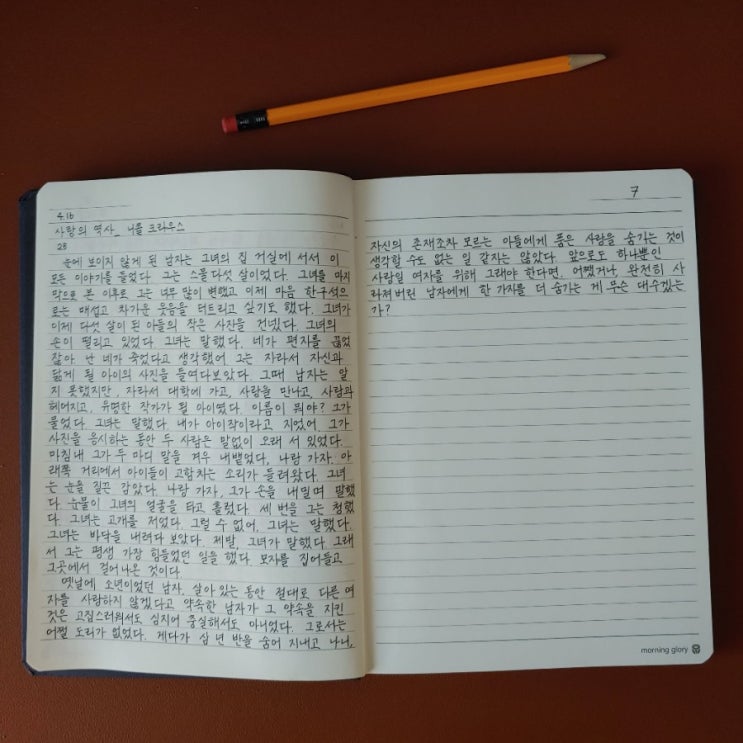 4.16
사랑의 역사_ 니콜 크라우스
28
눈에 보이지 않게 된 남자는 그녀의 집 거실에 서서 이
모든 이야기를 들었다. 그는 스물다섯 살이었다. 그녀를 마지
막으로 본 이후로 그는 너무 많이 변했고 이제 마음 한구석으
로는 매섭고 차가운 웃음을 터트리고 싶기도 했다. 그녀가
이제 다섯 살이 된 아들의 작은 사진을 건넸다. 그녀의
손이 떨리고 있었다. 그녀는 말했다. 네가 편지를 끊었
잖아 난 네가 죽었다고 생각했어 그는 자라서 자신과
닮게 될 아이의 사진을 들여다보았다. 그때 남자는 알
지 못했지만, 자라서 대학에 가고, 사랑을 만나고, 사랑과
헤어지고, 유명한 작가가 될 아이였다. 이름이 뭐야? 그가
물었다. 그녀는 말했다. 내가 아이작이라고 지었어 그가
사진을 응시하는 동안 두 사람은 말없이 오래 서 있었다.
마침내 그가 두 마디 말을 겨우 내뱉었다, 나랑 가자. 아
래쪽 거리에서 아이들이 고함치는 소리가 들려왔다. 그녀
는 눈을 질끈 감았다. 나랑 가자, 그가 손을 내밀며 말했
다. 눈물이 그녀의 얼굴을 타고 흘렀다. 세 번을 그는 청했
다. 그녀는 고개를 저었다. 그럴 수 없어, 그녀는 말했다.
그녀는 바닥을 내려다 보았다. 제발, 그녀가 말했다. 그래
서 그는 평생 가장 힘들었던 일을 했다. 모자를 집어들고
그곳에서 걸어나온 것이다.
옛날에 소년이었던 남자, 살아 있는 동안 절대로 다른 여
자를 사랑하지 않겠다고 약속한 남자가 그 약속을 지킨
것은 고집스러워서도 심지어 충실해서도 아니었다. 그로서는
어쩔 도리가 없었다. 게다가 삼 년 반을 숨어 지내고 나니,
7
자신의 존재조차 모르는 아들에게 품은 사랑을 숨기는 것이
생각할 수도 없는 일 같지는 않았다. 앞으로도 하나뿐인
사랑일 여자를 위해 그래야 한다면. 어쨌거나, 완전히 사
라져버린 남자에게 한 가지를 더 숨기는 게 무슨 대수겠는
가?
morning glory